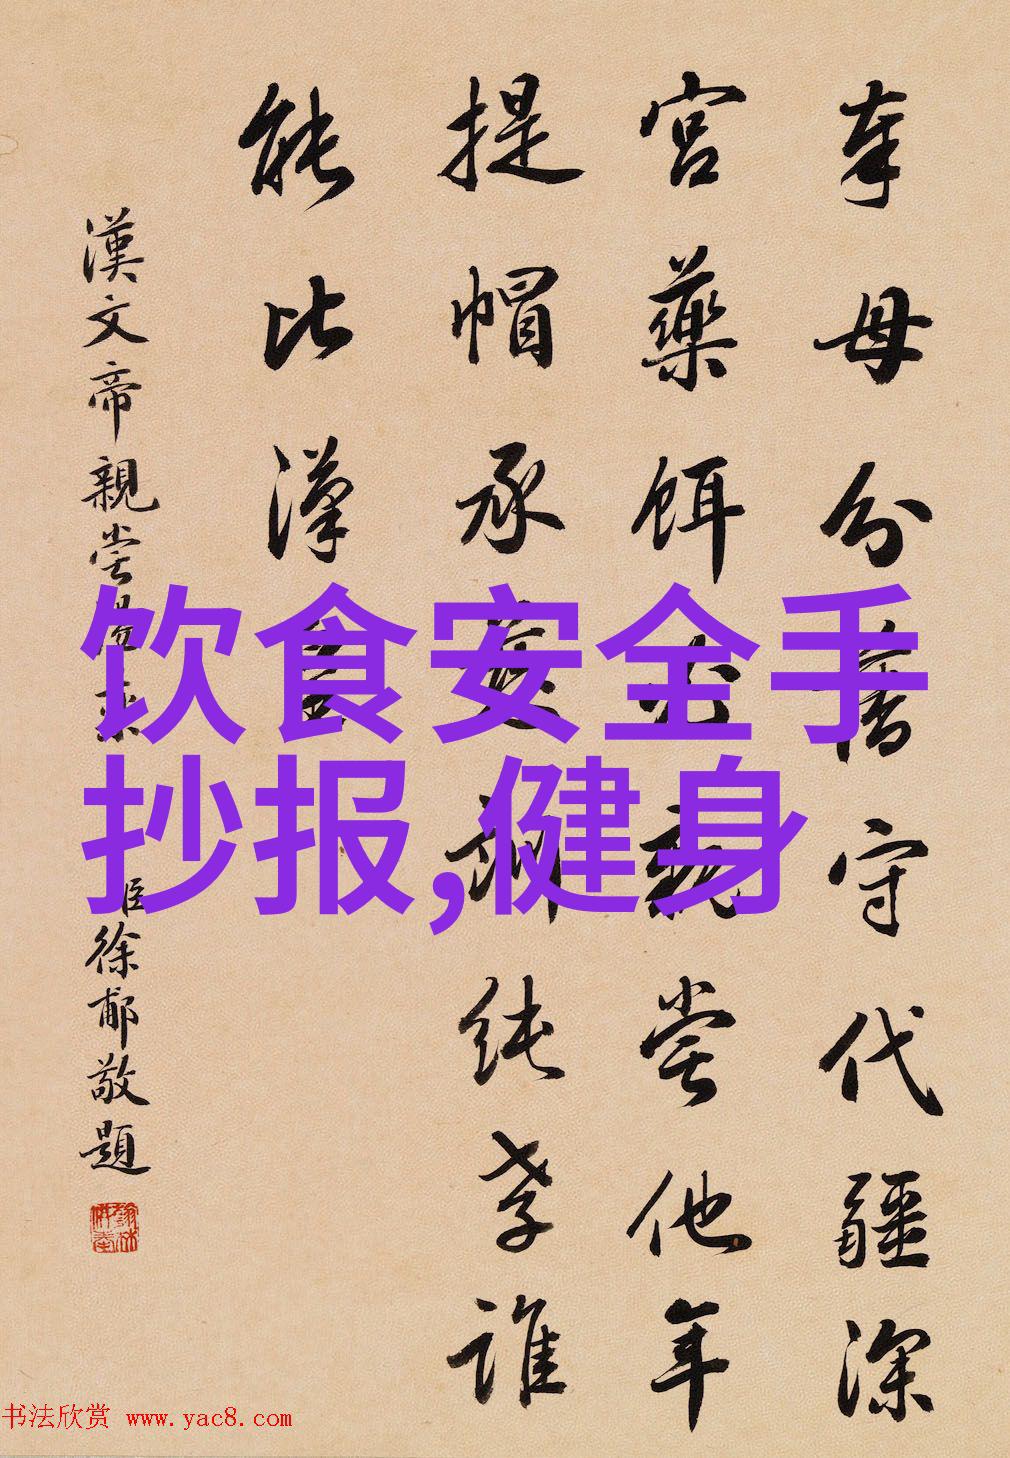 奉母分藩守代疆深
宮藥餌必親嘗他年
提帽承慈訓純孝誰
能比漢
漢文帝親嘗湯藥 臣徐郙敬題
饮食安全手
抄报,健身
书法欣赏 www.yac8.com